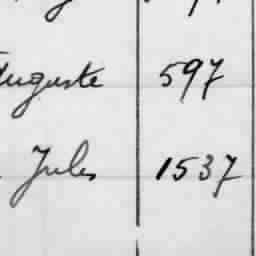 Auguste 597
Jules 1537